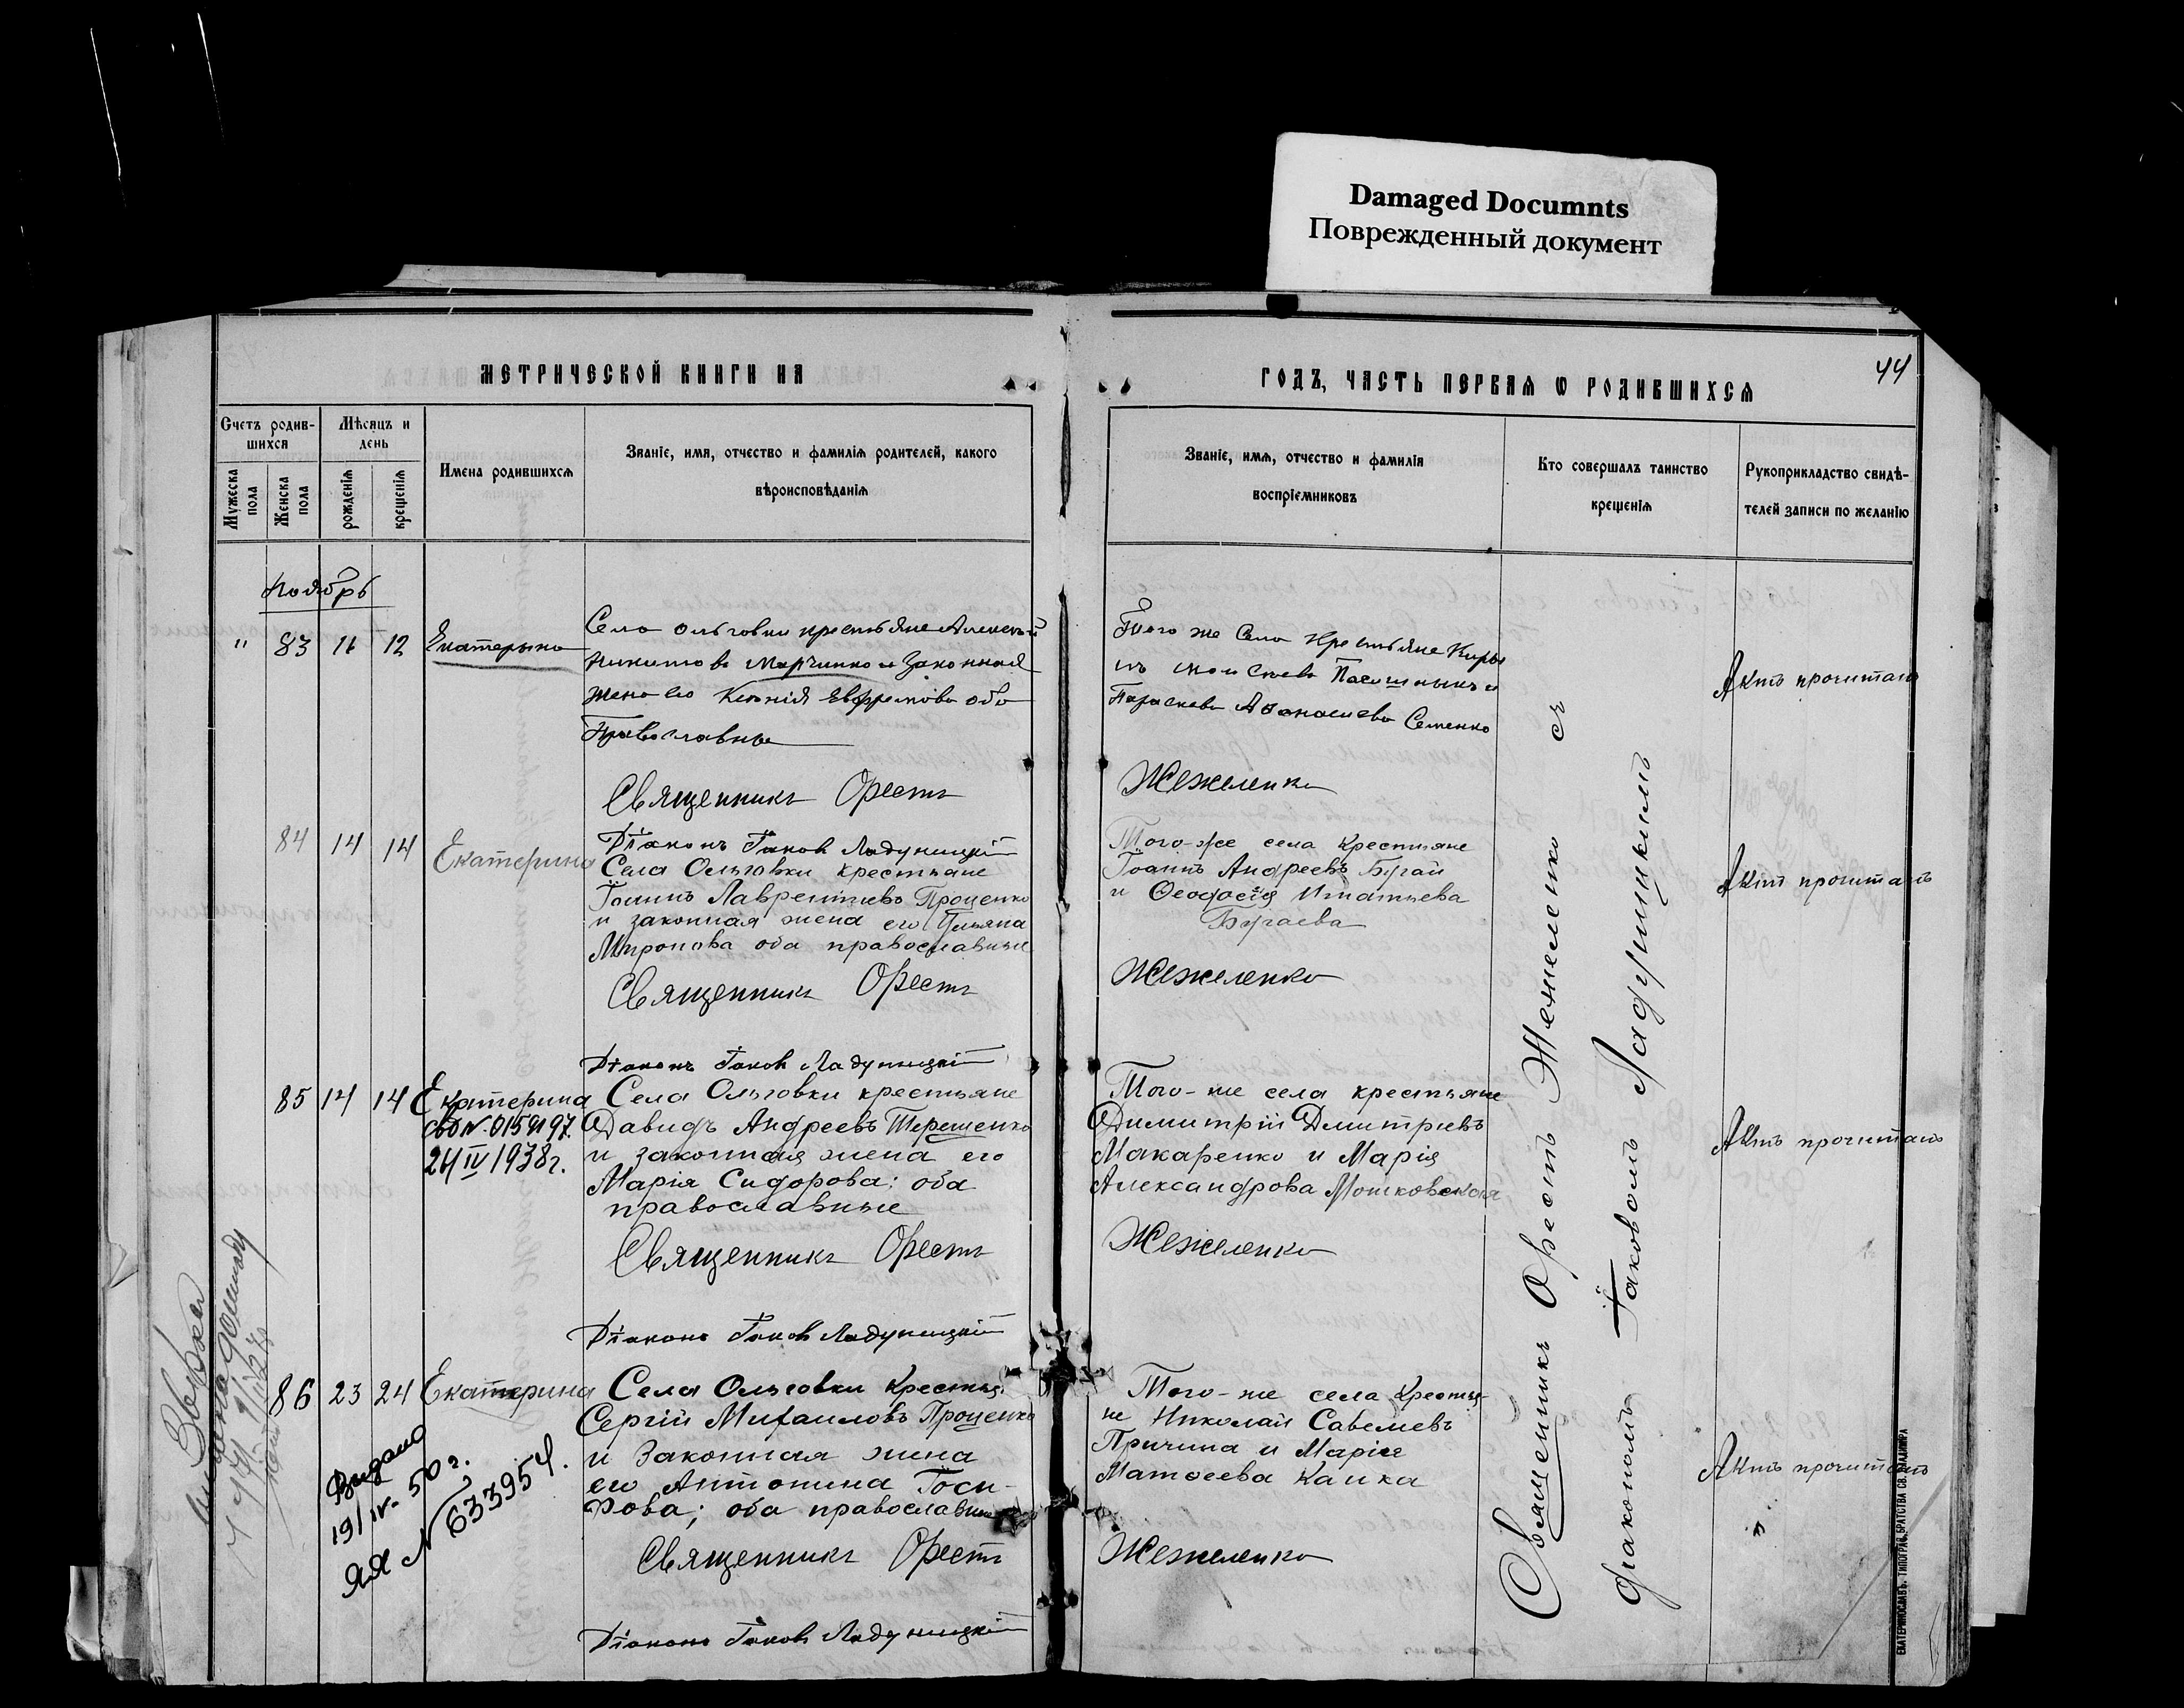 Damaged Documnts
Поврежденный документ
МЕТРИЧЕСКОЙ КНИГИ НА
ГОДЪ, ЧАСТЬ ПЕРВАЯ Ѡ РОДИВШИХСЯ
44
Счетъ родив-
шихся
Мѣсяцъ и
день
Мужеска
пола
Женска
пола
рожденія
крещенія
Имена родившихся
Званіе, имя, отчество и фамилія родителей, какого
вѣроисповѣданія
Званіе, имя, отчество и фамилія
воспріемниковъ
Кто совершалъ таинство
крещенія
Рукоприкладство свидѣ-
телей записи по желанію
Ноябрь
" 83 11 12 Екатерына
Села Ольговки крестьяне Алексѣй
Никитовъ Марченко и Законная
жена его Ксенія Евфремова оба
Православные
Священникъ Орестъ
Діаконъ Іаковъ Ладуницкій
Того же Села Крестьяне Кири
лъ
и
Параскева Аѳонасиева Семенко
Жежеленко
Актъ прочитанъ
84 14 14 Екатерина
Села Ольговки крестьяне
Іоаннъ Лаврентіевъ Проценко
и законная жена его Ульяна
Миронова оба православные
Священникъ Орестъ
Діаконъ Іаковъ Ладуницкій
Того-же села крестьяне
Іоаннъ Андреевъ Бугай
и Ѳеодосія Игнатьева
Бугаева
Жежеленко
Актъ прочитанъ
85 14 14 Екатерина
24/IV 1938г.
Села Ольговки крестьяне
Давидъ Андреевъ Терещенко
и законная жена его
Марія Сидорова: оба
православные
Священникъ Орестъ
Діаконъ Іаковъ Ладуницкій
Того-же села крестьяне
Димитрій Дмитріевъ
Макаренко и Марія
Александрова Мошковская
Жежеленко
Актъ прочитанъ
86 23 24 Екатерина
Выдано
19/IV- 50 г.
ЯЯ N 633954.
Села Ольговки Крестья
Сергій Михаиловъ Проценко
и Законная жена
его Антонина
оба православные
Священникъ Орестъ
Діаконъ Іаковъ Ладуницкій
Того-же села Крестья-
не Николай Савелиевъ
Причина и Марія
Матѳеева Каика
Жежеленко
Актъ прочитанъ
"
Священникъ Орестъ Жежеленко съ
діакономъ Іаковомъ Ладуницкимъ
ЕКАТЕРИНОСЛАВЪ. ТИПОГРАФ. БРАТСТВА СВ. ВЛАДИМІРА